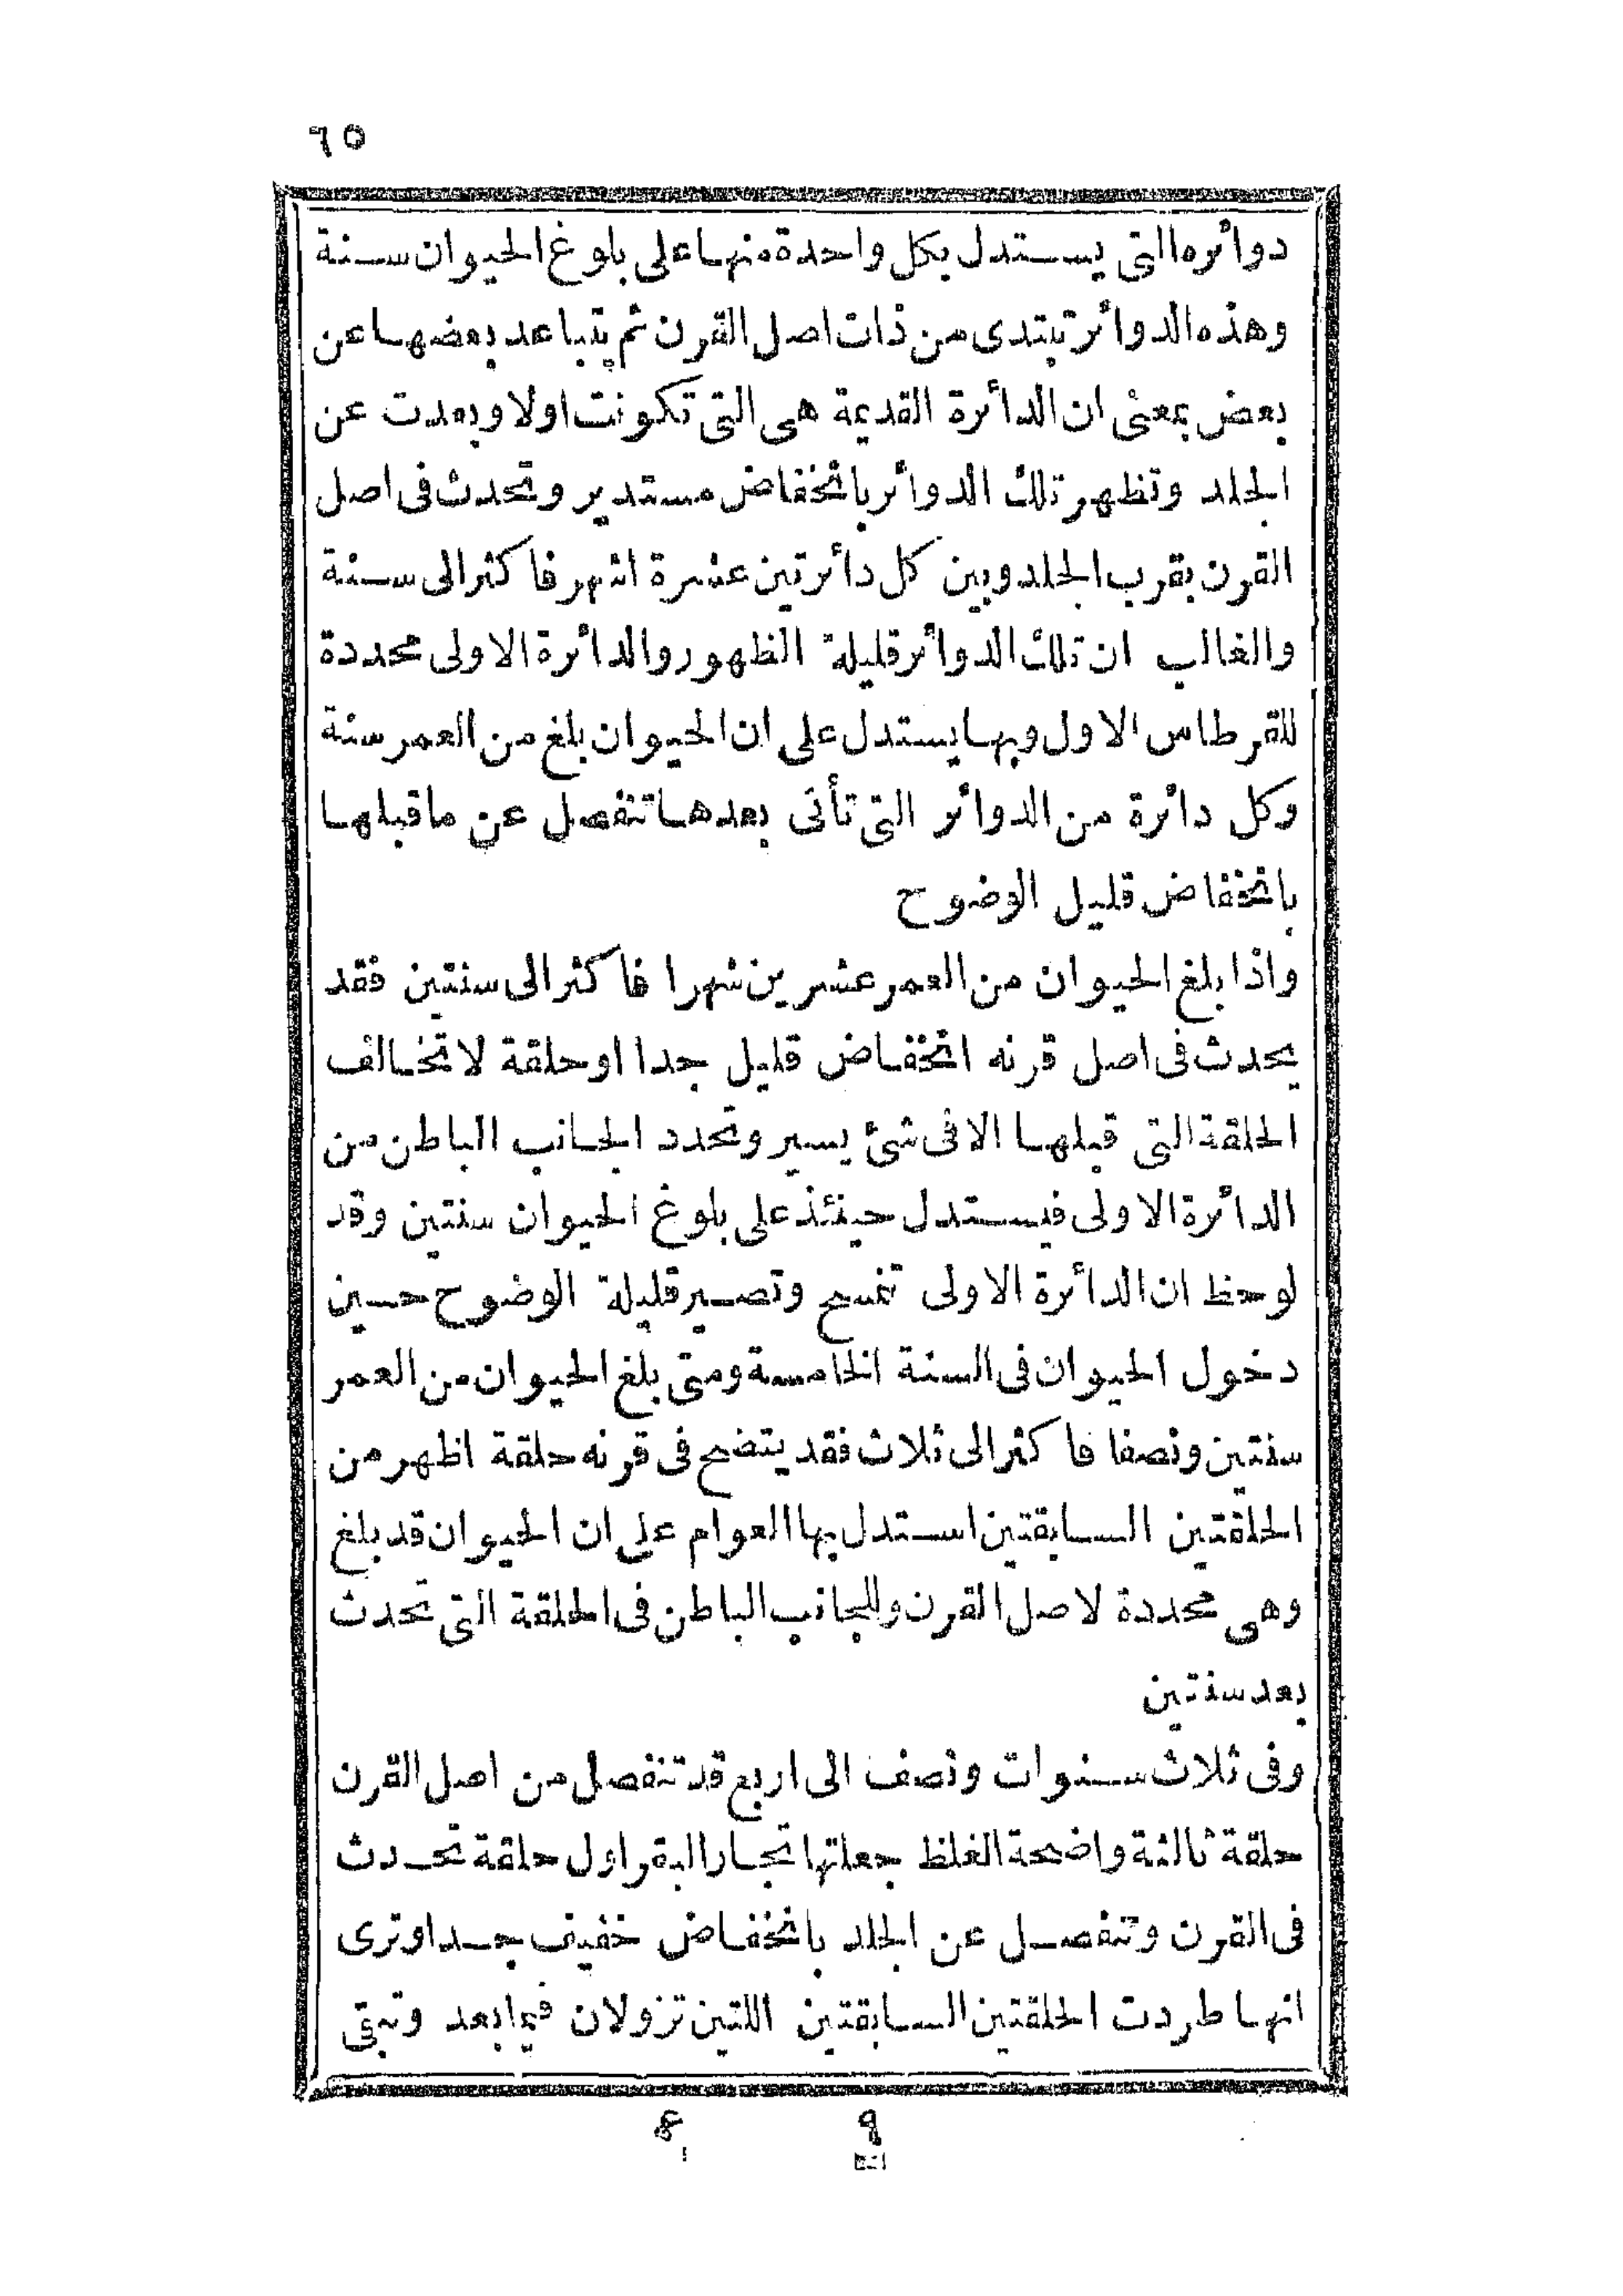 ٦٥
دوائره التى يستدل بكل واحدة منها على بلوغ الحيوان سنة
وهذه الدوائر تبتدى من ذات اصل القرن ثم يتباعد بعضها عن
بعض بمعنى ان الدائرة القديمة هى التى تكونت اولا وبعدت عن
الجلد وتظهر تلك الدوائر بانخفاض مستدير وتحدث فى اصل
القرن بقرب الجلد وبين كل دائرتين عشرة اشهر فاكثر الى سنة
والغالب ان تلك الدوائر قليلة الظهور والدائرة الاولى محددة
للقرطاس الاول وبها يستدل على ان الحيوان بلغ من العمر سنة
وكل دائرة من الدوائر التى تأتى بعدها تنفصل عن ما قبلها
بانخفاض قليل الوضوح
واذا بلغ الحيوان من العمر عشرين شهرا فاكثر الى سنتين فقد
يحدث فى اصل قرنه انخفاض قليل جدا او حلقة لا تخالف
الحلقة التى قبلها الا فى شئ يسير وتحدد الجانب الباطن من
الدائرة الاولى فيستدل حينئذ على بلوغ الحيوان سنتين وقد
لوحظ ان الدائرة الاولى تمسح وتصير قليلة الوضوح حين
دخول الحيوان فى السنة الخامسة ومتى بلغ الحيوان من العمر
سنتين ونصفا فاكثر الى ثلاث فقد يتضح فى قرنه حلقة اظهر من
الحلقتين السابقتين استدل بها العوام على ان الحيوان قد بلغ
وهى محددة لاصل القرن وللجانب الباطن فى الحلقة التى تحدث
بعد سنتين
وفى ثلاث سنوات ونصف الى اربع قد تنفصل من اصل القرن
حلقة ثالثة واضحة الغلظ جعلتها تجار البقر اول حلقة تحدث
فى القرن وتنفصل عن الجلد بانخفاض خفيف جدا وترى
انها طردت الحلقتين السابقتين اللتين تزولان فيما بعد وتبقى
٩